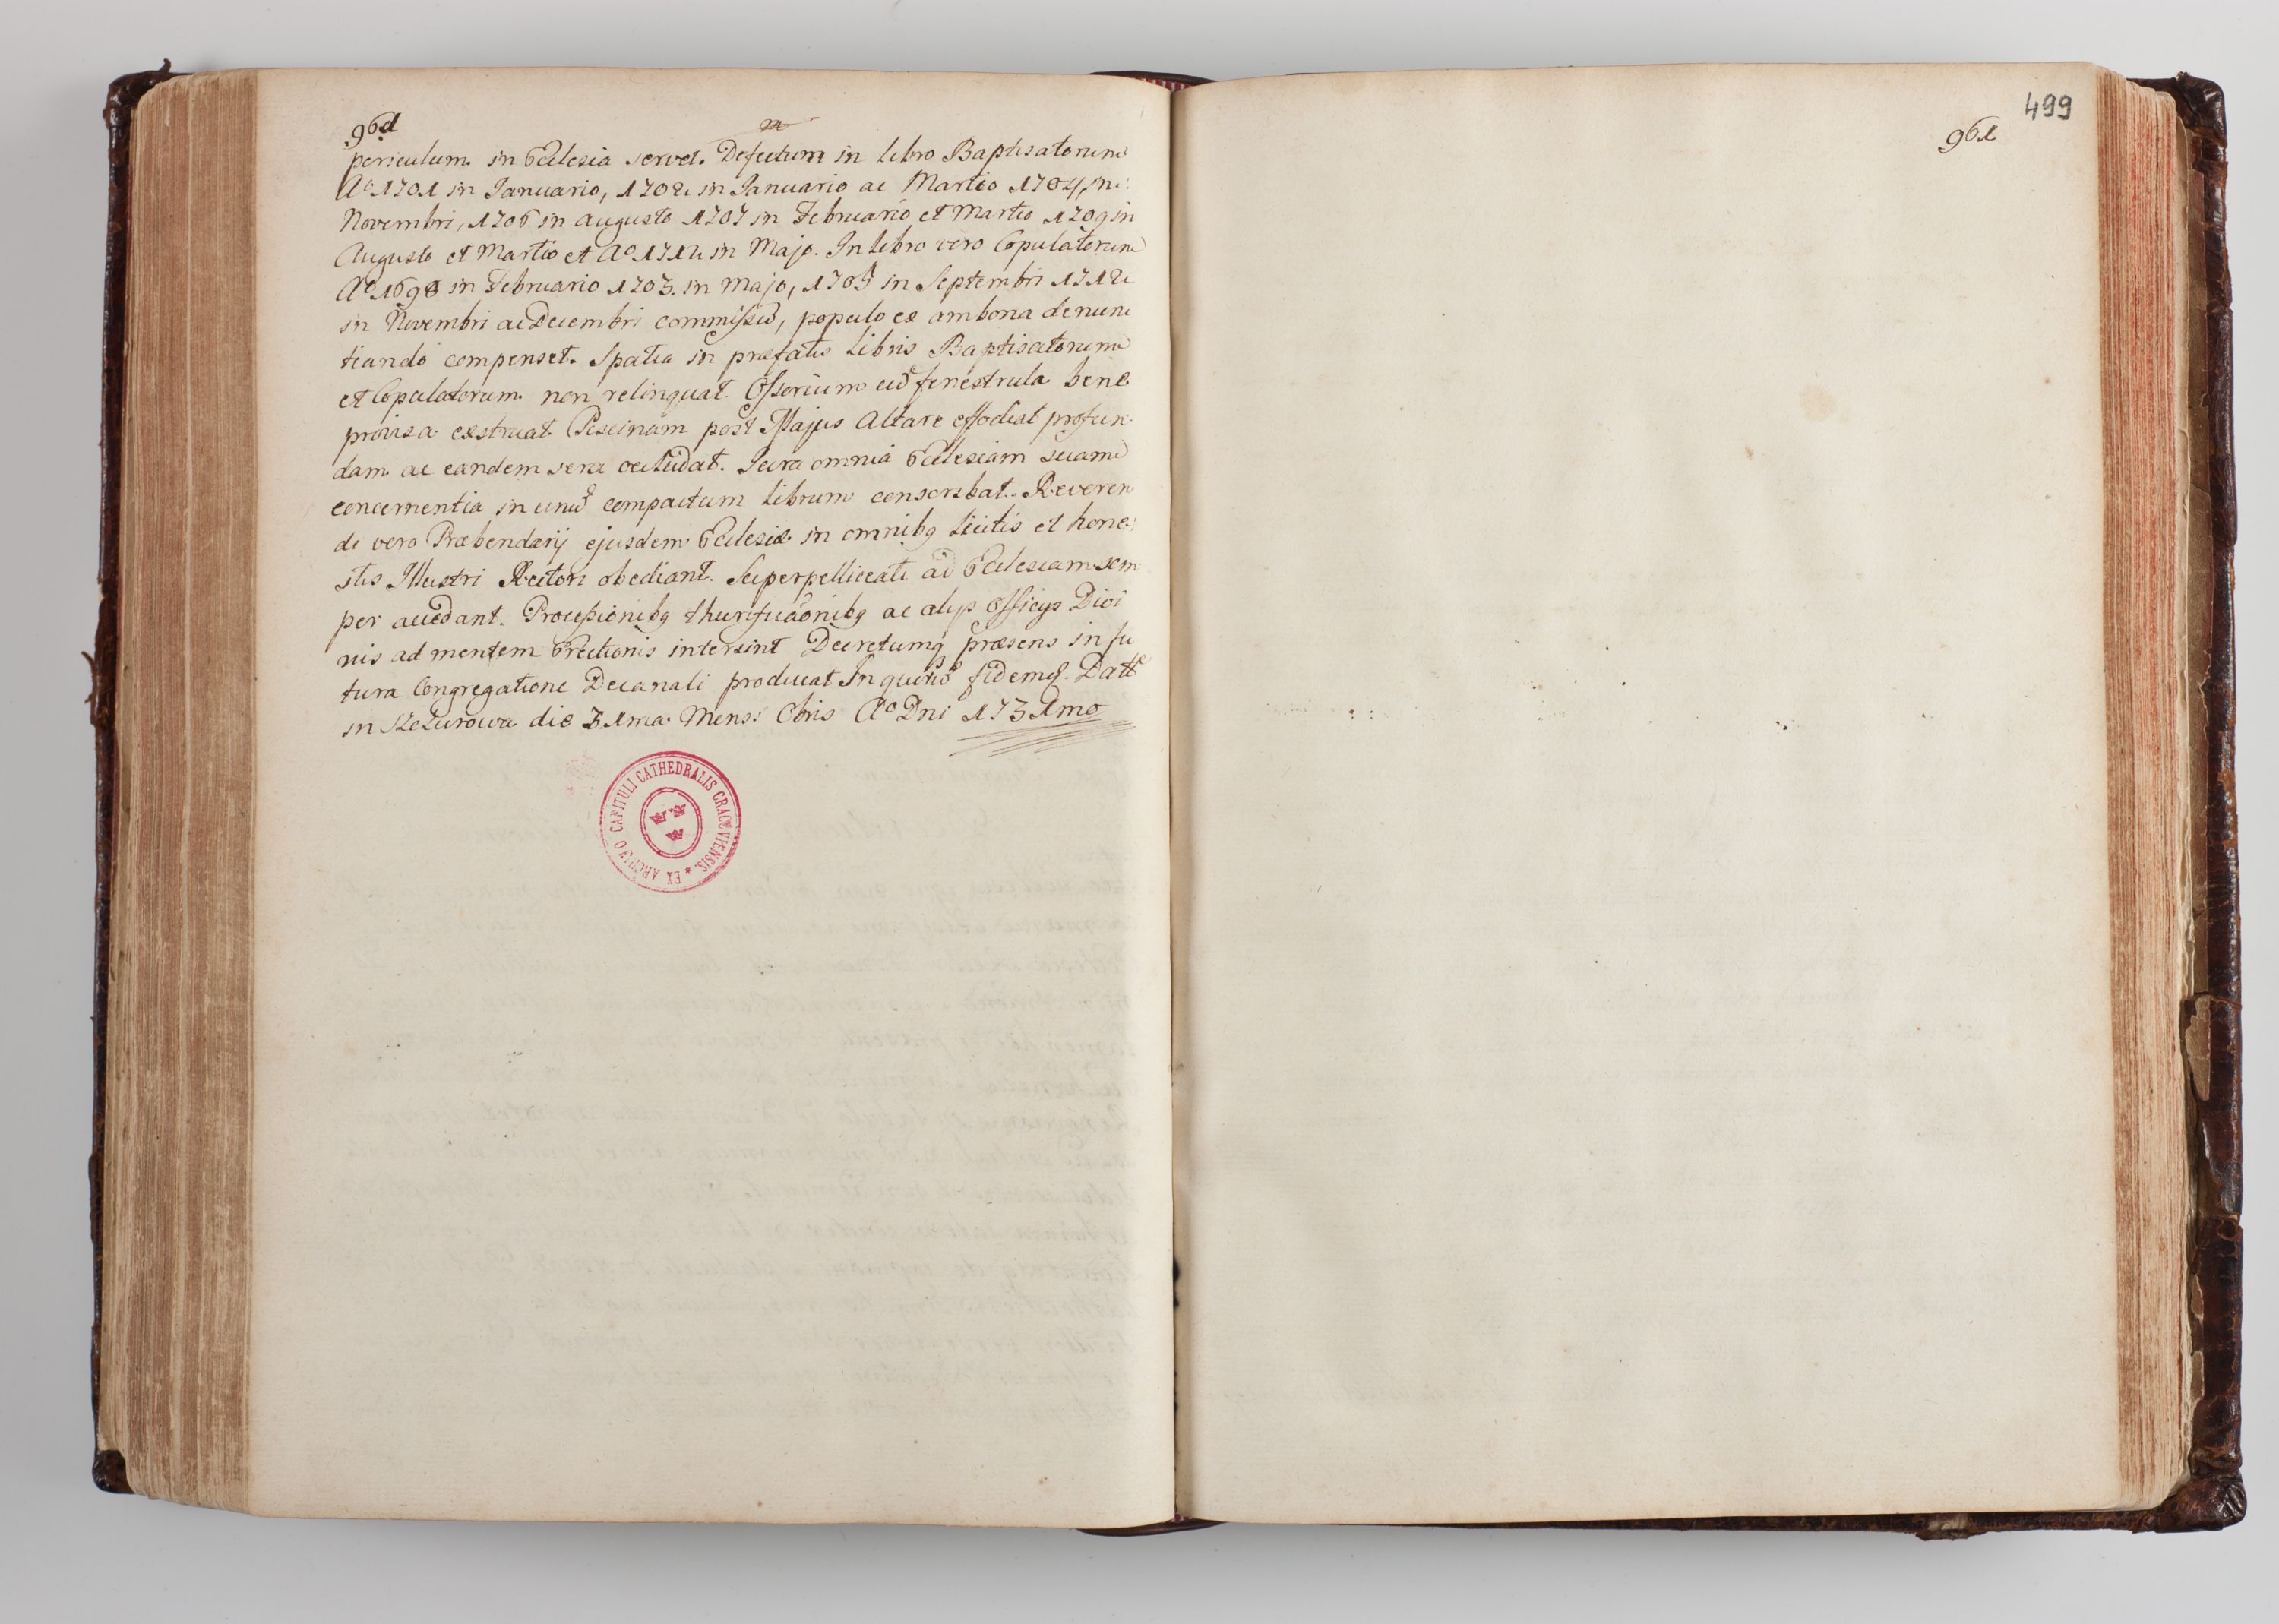 96d
periculum in Ecclesia servet. Defectum in libro Baptisatorum
Ao 1701 in Januario, 1702 in Januario ac Martio 1704, in
Novembri, 1706 in Augusto 1707 in Februario et Martio 1709 in
Augusto et Martio et Ao 1712 in Majo. In libro vero Copulatorum
Ao 1698 in Februario 1703. in Majo, 1705 in Septembri 1712
in Novembri ac Decembri commissū, populo ex ambona denun
tiando compenset. Spatia in præfatis Libris Baptisatorum
et Copulatorum non relinquat. Ossorium cū fenestrula bene
provisa exstruat. Piscinam post Majus Altare effodiat profun
dam ac eandem sera occludat. Jura omnia Ecclesiam suam
concernentia in unū compactum librum conscribat. Reveren
di vero Præbendarij ejusdem Ecclesiæ in omnibq licitis et hone
stis Illustri Rectori obediant. Superpelliceati ad Ecclesiam sem
per accedant. Processionibq thurificãonibq ac alijs Officijs Divi
nis ad mentem Erectionis intersint Decretumq præsens in fu
tura Congregatione Decanali producat In quorū fidem
in Szczurowa die 31ma Mens: Obris Ao Dni 1731mo
EX ARCHIVO CAPITULI CATHEDRALIS CRACOVIENSIS.
499
961